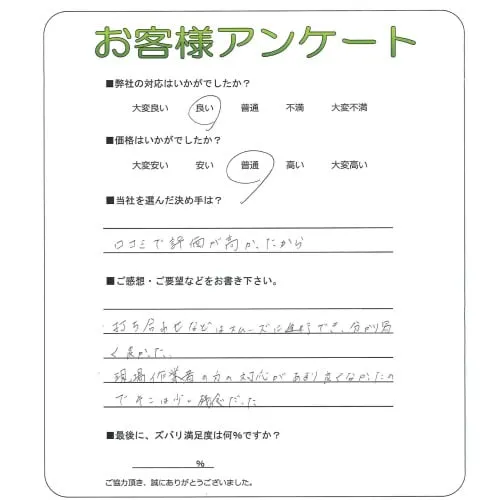 お客様アンケート
■弊社の対応はいかがでしたか？
大変良い 良い 普通 不満 大変不満
■価格はいかがでしたか？
大変安い 安い 普通 高い 大変高い
■当社を選んだ決め手は？
口コミで評価が高かったから
■ご感想・ご要望などをお書き下さい。
・打ち合わせなどはスムーズに進行でき、分かり易
く良かった。
・現場作業者の方の対応があまり良くなかったの
でそこは少し残念だった
■最後に、ズバリ満足度は何%ですか？
%
ご協力頂き、誠にありがとうございました。